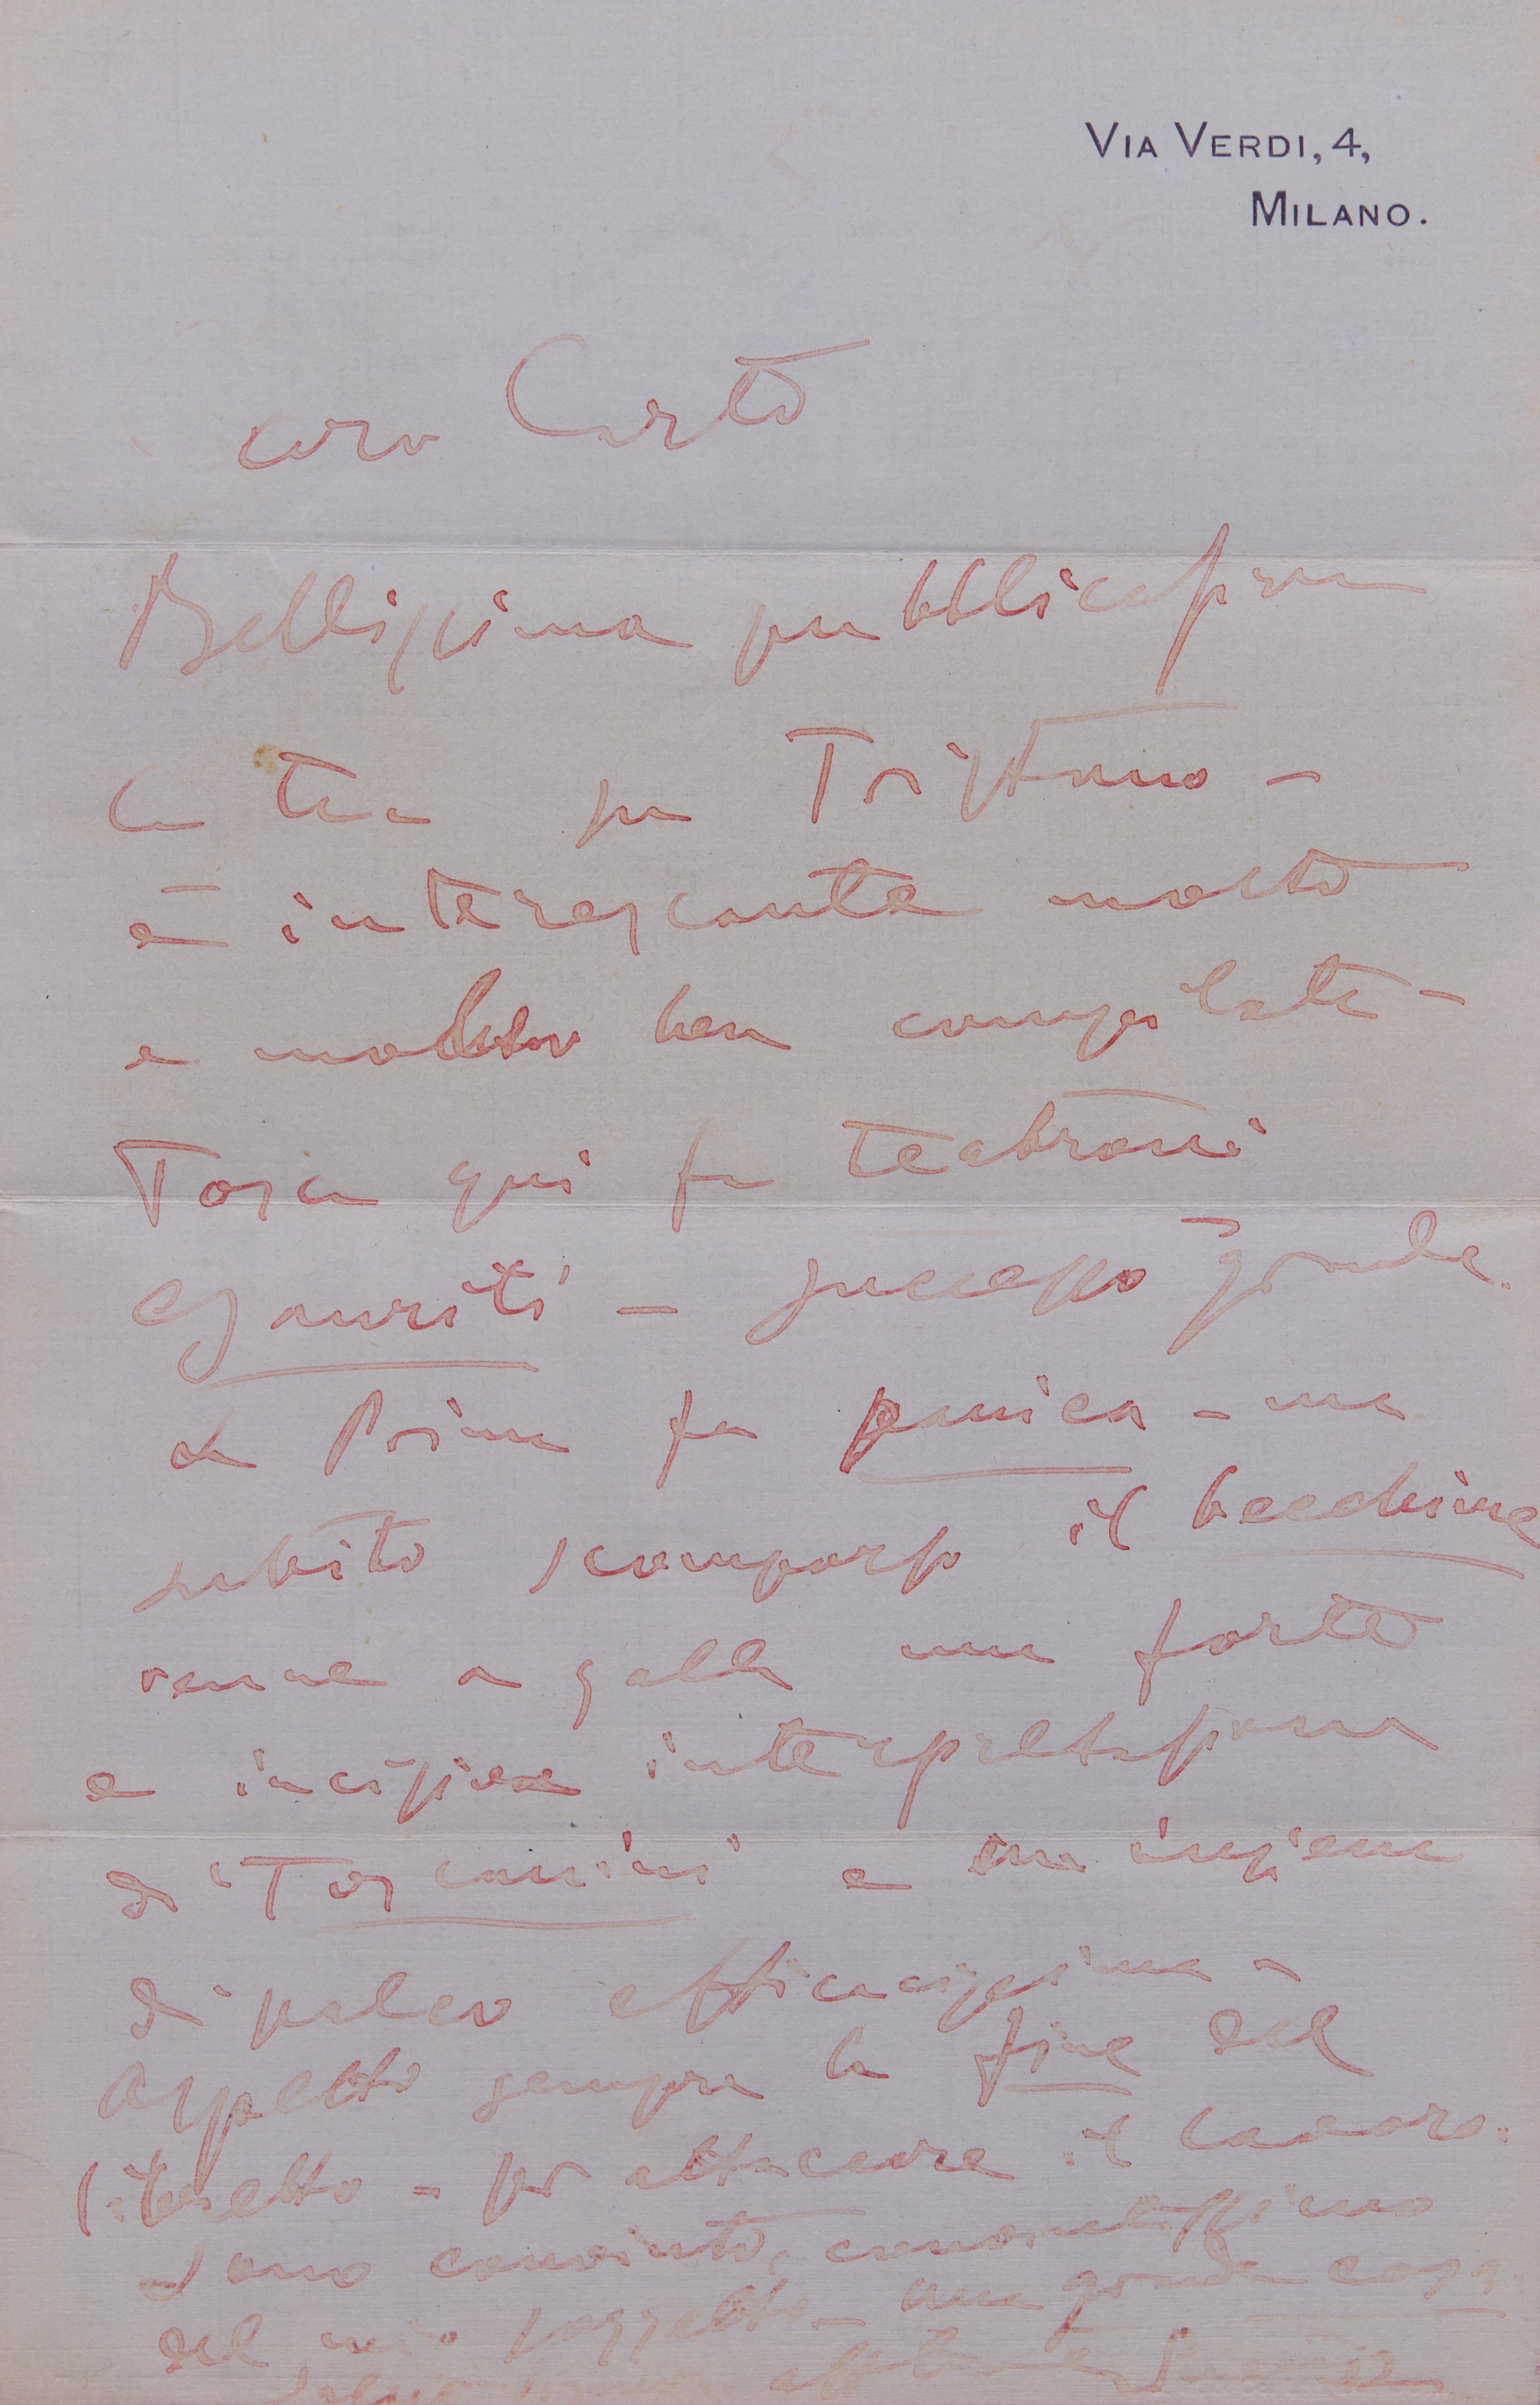 VIA VERDI, 4,
MILANO.
caro Carlo
Bellissima pubblicazione
la tua su Tristano -
è interessante molto
e molto ben compilata -
Tosca qui fa teatroni
esauriti - successo grande.
La Prima fu panica - ma
subito scomparso il becchime
venne a galla una forte
e incisiva interpretazione
di Toscanini e un insieme
di palco efficacissimo -
Aspetto sempre la fine del
libretto - per attaccare il lavoro.
Sono convinto, convintissimo
del mio soggetto - una grande cosa